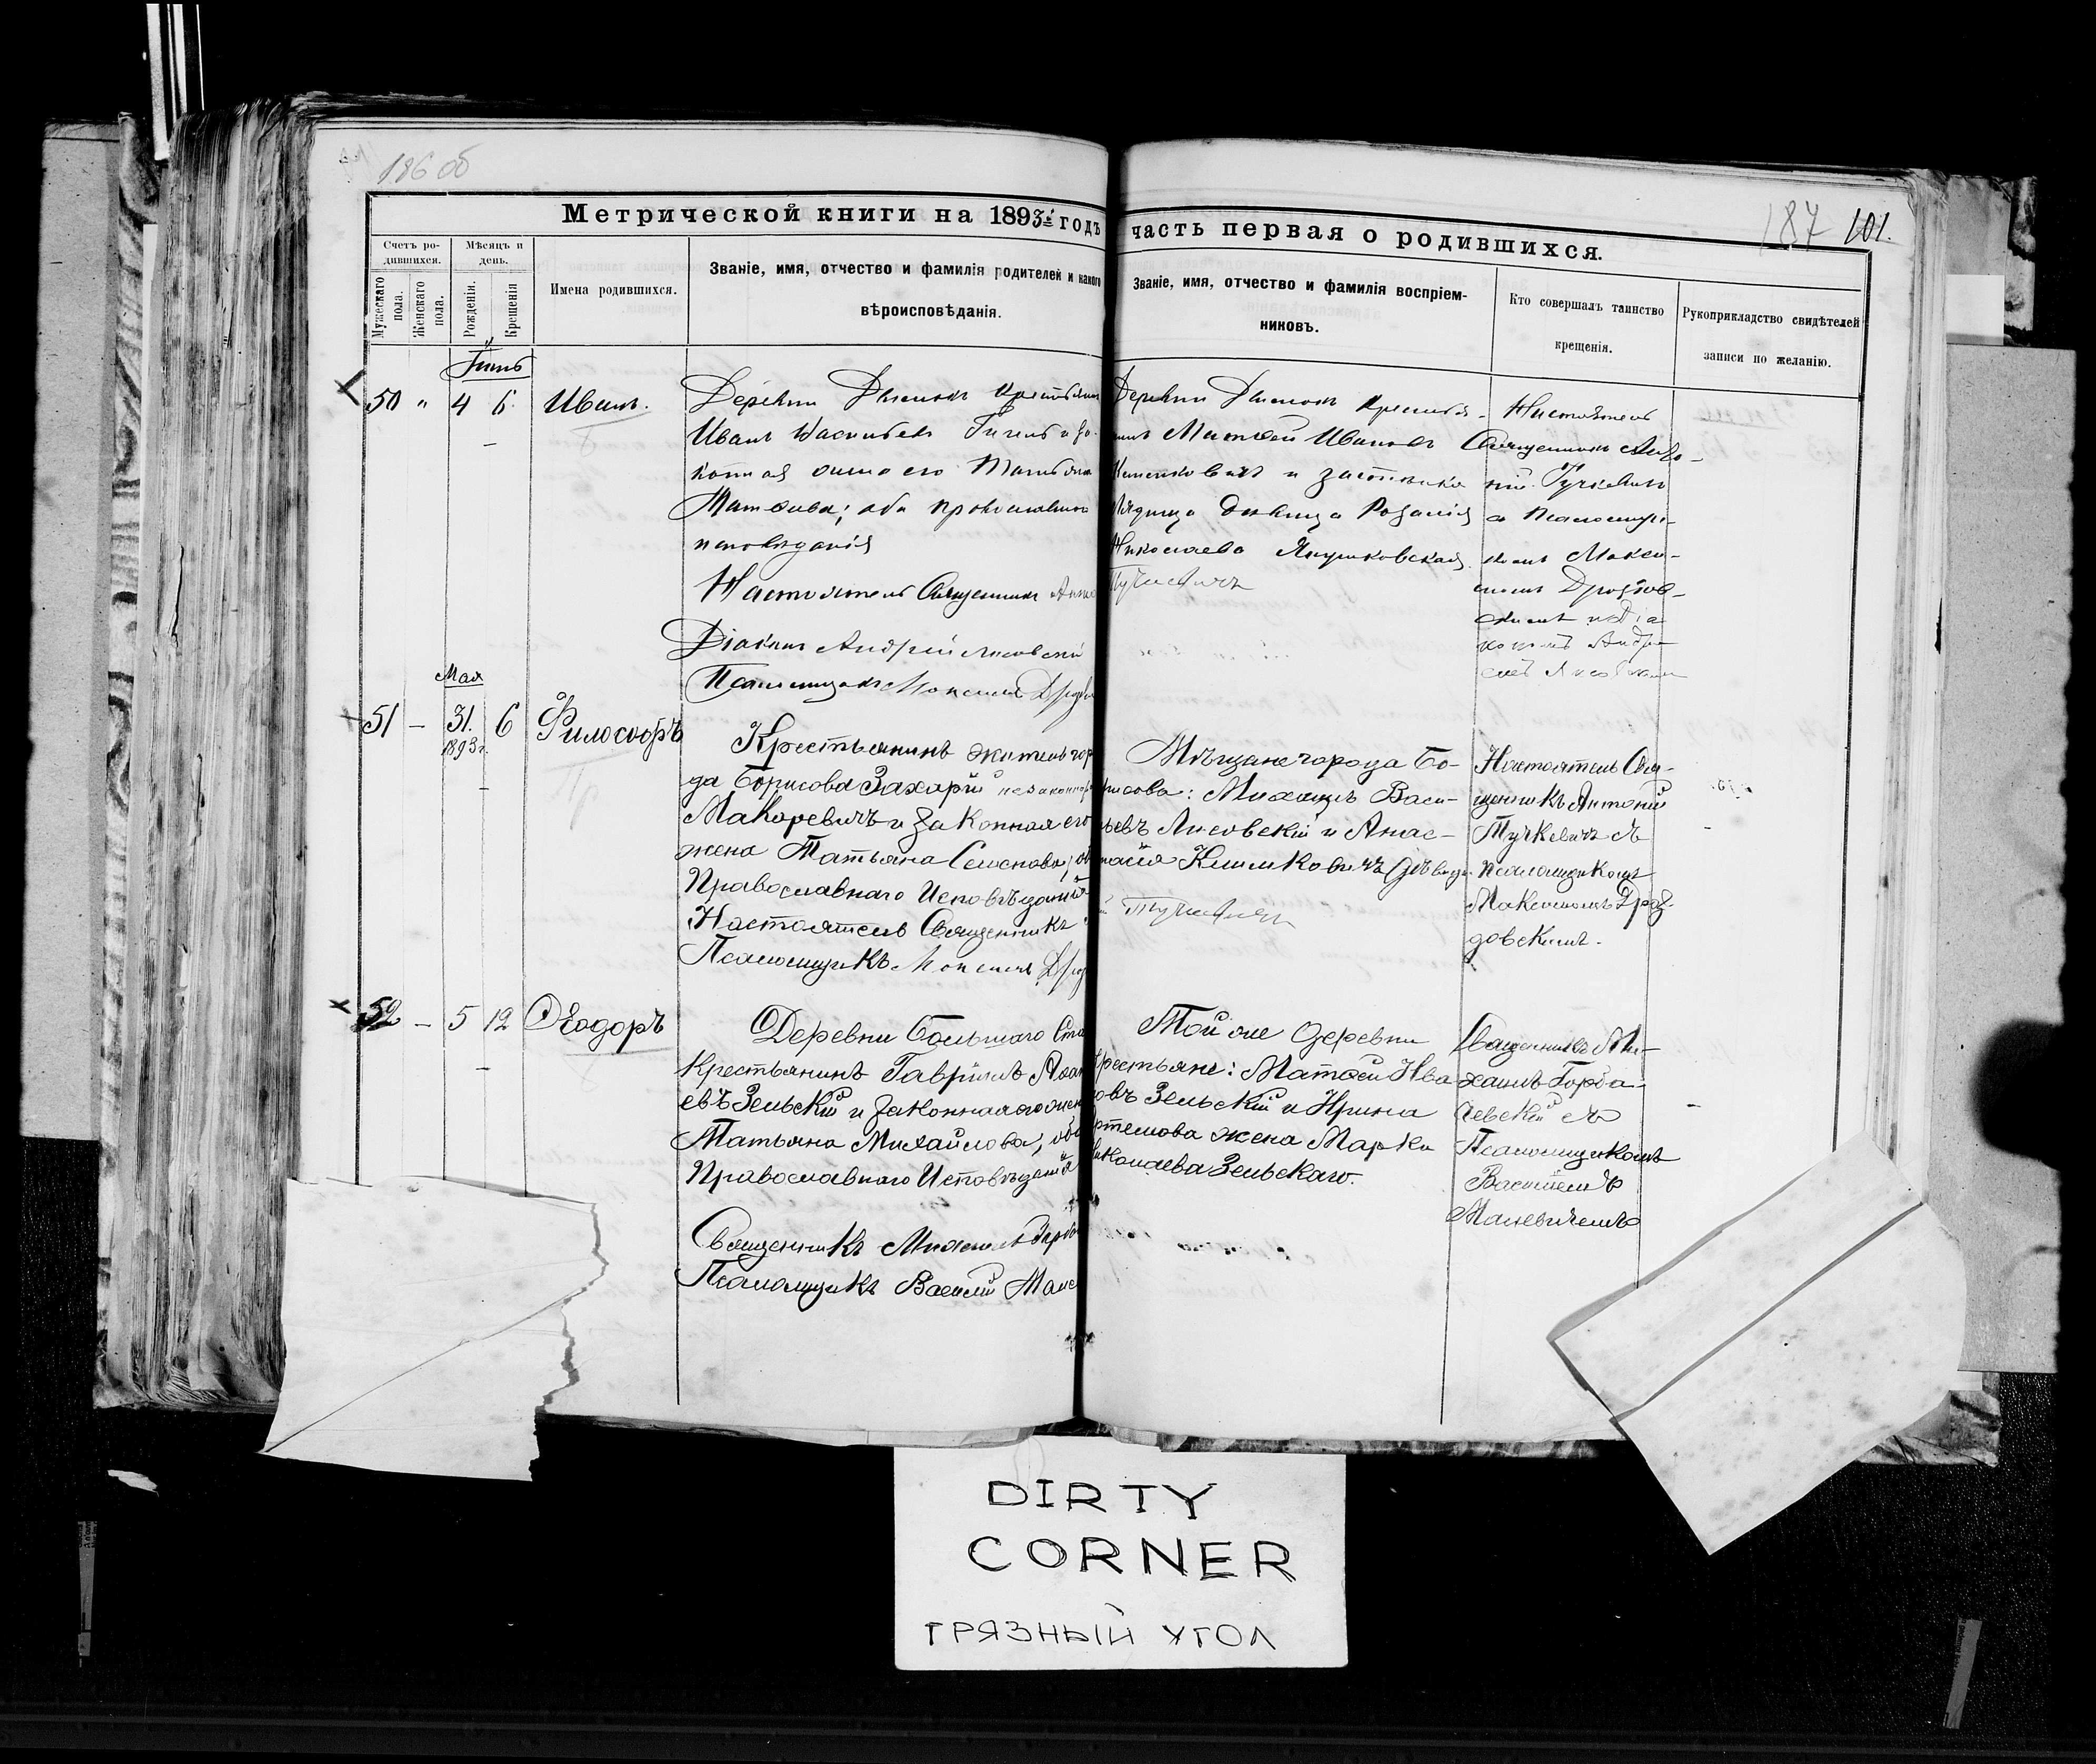 186 об
Метрической книги на 1893й годъ
часть первая о родившихся.
187 101.
Счетъ ро-
дившихся.
Мѣсяцъ и
день.
Мужескаго
пола.
Женскаго
пола.
Рожденія.
Крещенія
Имена родившихся.
Званіе, имя, отчество и фамилія родителей и какого
вѣроисповѣданія.
Званіе, имя, отчество и фамилія воспріем-
никовъ.
Кто совершалъ таинство
крещенія.
Рукоприкладство свидѣтелей
записи по желанію.
50 " 4 6 Иванъ.
Деревни
Иванъ
жена его
Матѳеева; оба православнаго
исповѣданія
Настоятель Священникъ
Діаконъ Андрей Лисовскій
Псаломщикъ Максимъ
Деревни
Матвей Ивановъ
и
дѣвица Розалія
Николаева Янушковская.
Тучкевичъ
Настоятель
Священникъ Анто-
ній Тучкевичъ
съ Псаломщи-
комъ Макси-
момъ Дроздов-
скимъ и Діа
кономъ Андре
емъ Лисовскимъ
Мая
51 – 31. 6 Философъ
1893 г.
Крестьянинъ житель гор
да Борисова Захарій
Макаревичъ и законная его
жена Татьяна Семенова; об
Православнаго Исповѣданія
Настоятель Священникъ
Псаломщикъ Максимъ Дрозд
Мѣщане города Бо-
рисова: Михаилъ Васи-
льевъ Лисовскій и Анас-
тасія Климковичъ дѣвица
Тучкевичъ
Настоятель Свя-
щенникъ Антоній
Тучкевичъ съ
псаломщикомъ
Максимомъ Дроз-
довскимъ.
52 – 5 12 Ѳеодоръ
Деревни Большаго Ста
Крестьянинъ Гавріилъ
евъ Зельскій и законная его жен
Татьяна Михайлова; оба
Православнаго Исповѣданія
Священникъ Михаилъ Горба
Псаломщикъ Василій Мац
Той же деревни
Крестьяне: Матѳей Ива
новъ Зельскій и Ирина
Артемова жена Марка
Николаева Зельскаго.
Священникъ Ми-
хаилъ Горба-
чевскій съ
Псаломщикомъ
Василіемъ
DIRTY
CORNER
ГРЯЗНЫЙ УГОЛ